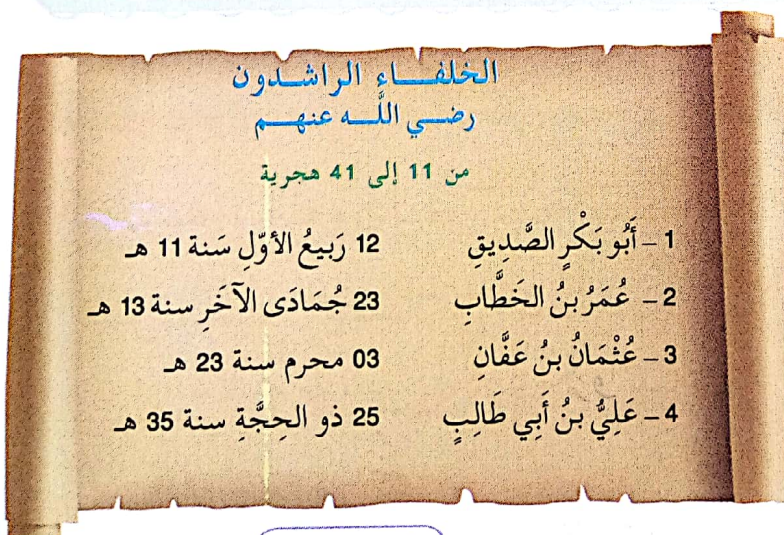 الخلفـــاء الراشـدون
رضـــي اللَّـــه عنهـــم
من 11 إلى 41 هجرية
1 – أَبُو بَكْرٍ الصَّدِيقِ 12 رَبيعُ الأوّلِ سَنة 11 هـ
2 – عُمَرُ بنُ الخَطَّابِ 23 جُمَادَى الآخَرِ سنة 13 هـ
3 – عُثْمَانُ بنُ عَفَّانِ 03 محرم سنة 23 هـ
4 – عَلِيُّ بنُ أَبِي طَالِبٍ 25 ذو الحِجَّةِ سنة 35 هـ